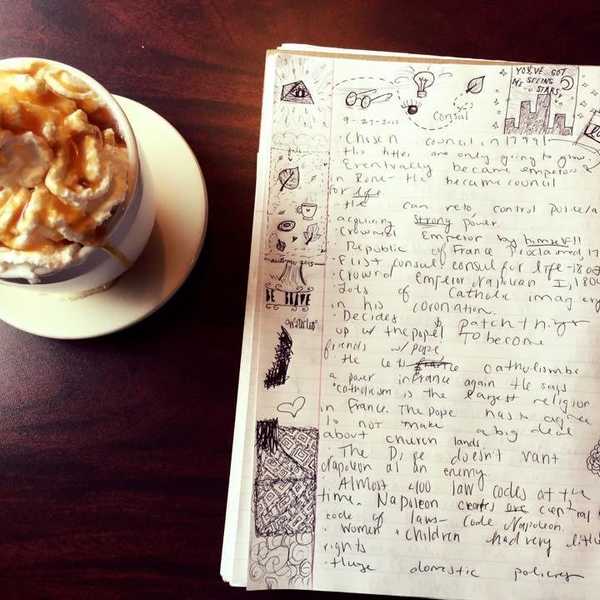 YOU'VE GOT
ME SEEING
STARS
Consul
9-27-
Chosen council in 1799
His titles are only going to grow
Eventually became emperor
in Rome the became council
for life
the can veto control Police/a
acquiring strong power
Crowned Emperor by himself!!
Republic of France Proclaimed, 17
First consul: consul for life - 180
Crownd Emperor Napolean I, 180
autumn 2015
Lots of Catholic imagery
BE BRAVE
in his coronation.
Decides patch things
up w/ the pope! To become
friends w/ Pope
He lets catholism be
a power in France again He says
"catholism is the largest religion
in France. The Pope has to agree
to not make a big deal
about church lands.
The Pope doesn't want
Napolean as an enemy.
Almost 400 law codes at the
time. Napolean creates one central
code of laws - code Napolean.
Women & children had very little
rights
Huge domestic policies